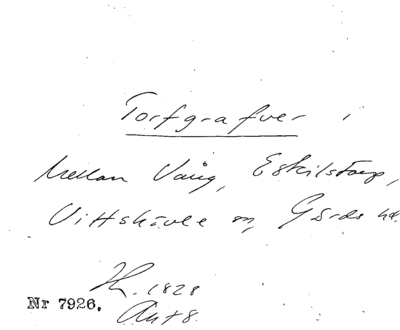 Torfgrafver i
Mellan Vång, Eskilstorp,
Vittskövle sn, Gärds hd.
H. 1828
Ant 8.
Nr 7926.